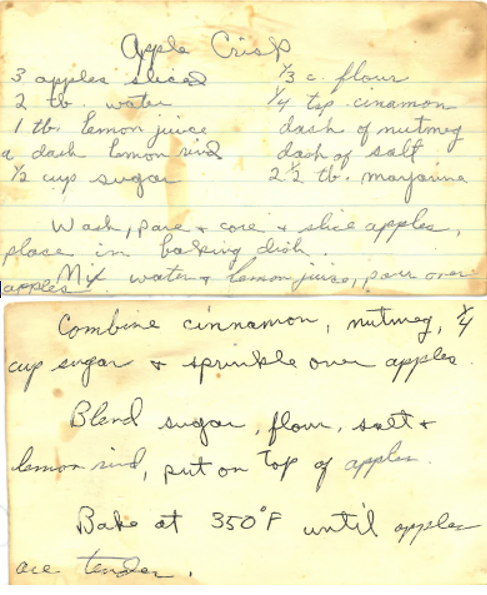 Apple Crisp
3 apples sliced
2 tb. water
1 tb. lemon juice
a dash lemon rind
1/2 cup sugar
1/3 c. flour
1/4 tsp cinamon
dash of nutmeg
dash of salt
2 1/2 tb. margarine
Wash, pare + core + slice apples,
place in baking dish.
Mix water + lemon juice, pour over
apples
Combine cinnamon, nutmeg, 1/4
cup sugar + sprinkle over apples.
Blend sugar, flour, salt +
lemon rind, put on top of apples.
Bake at 350°F until apples
are tender.